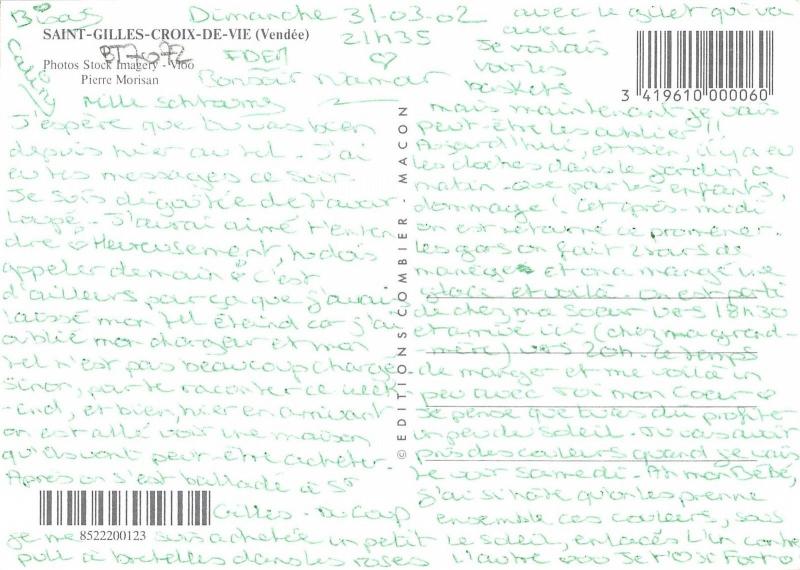 Bisous
Câlins
Dimanche 31-03-02
21h35
SAINT-GILLES-CROIX-DE-VIE (Vendée)
BT7072
Photos Stock Imagery - Vloo
Pierre Morisan
Bonsoir Mamour
Mille
J'espère que tu vas bien
depuis hier au tel. J'ai
eu tes messages ce soir.
Je suis dégoûtée de t'avoir
loupé. J'aurai aimé t'enten
dre Heureusement, tu dois
appeler demain c'est
d'ailleurs pour ça que j'avais
laissé mon tel éteind car j'ai
oublié mon chargeur et mon
tel n'est pas beaucoup chargé
sinon, par te raconter ce week
-end, et bien, hier en arrivant
on est allé voir une maison
qu'ils vont peut-être acheter.
Après on s'est balladé à St
Gilles - Du coup
8522200123
je me suis achetée un petit
pull à bretelles dans les roses
avec le gilet qui va
avec
Je voulais
voir les
baskets
3 419610 000060
mais maintenant je vais
peut-être les oublier !!
Aujourd'hui, et bien, il y a eu
les cloches dans le jardin ce
matin - que par les enfants,
dommage! Cet après-midi
on est retourné se promener.
Les gars on fait 2 tours de
manèges et on a mangé une
glace et voilà. On est parti
de chez ma soeur vers 18h30
et arrivée ici (chez ma grand-
mère) vers 20h. Le temps
de manger et me voilà un
peu avec Toi mon Coeur
Je pense que tu as du profiter
un peu du soleil. Tu vas avoir
pris des couleurs quand je vais
te voir samedi. Ah mon Bébé,
j'ai si hâte qu'on les prenne
ensemble ces couleurs, sous
le soleil, enlacés l'un contre
l'autre ooo Je t'♡ si Fort
© EDITIONS COMBIER - MACON